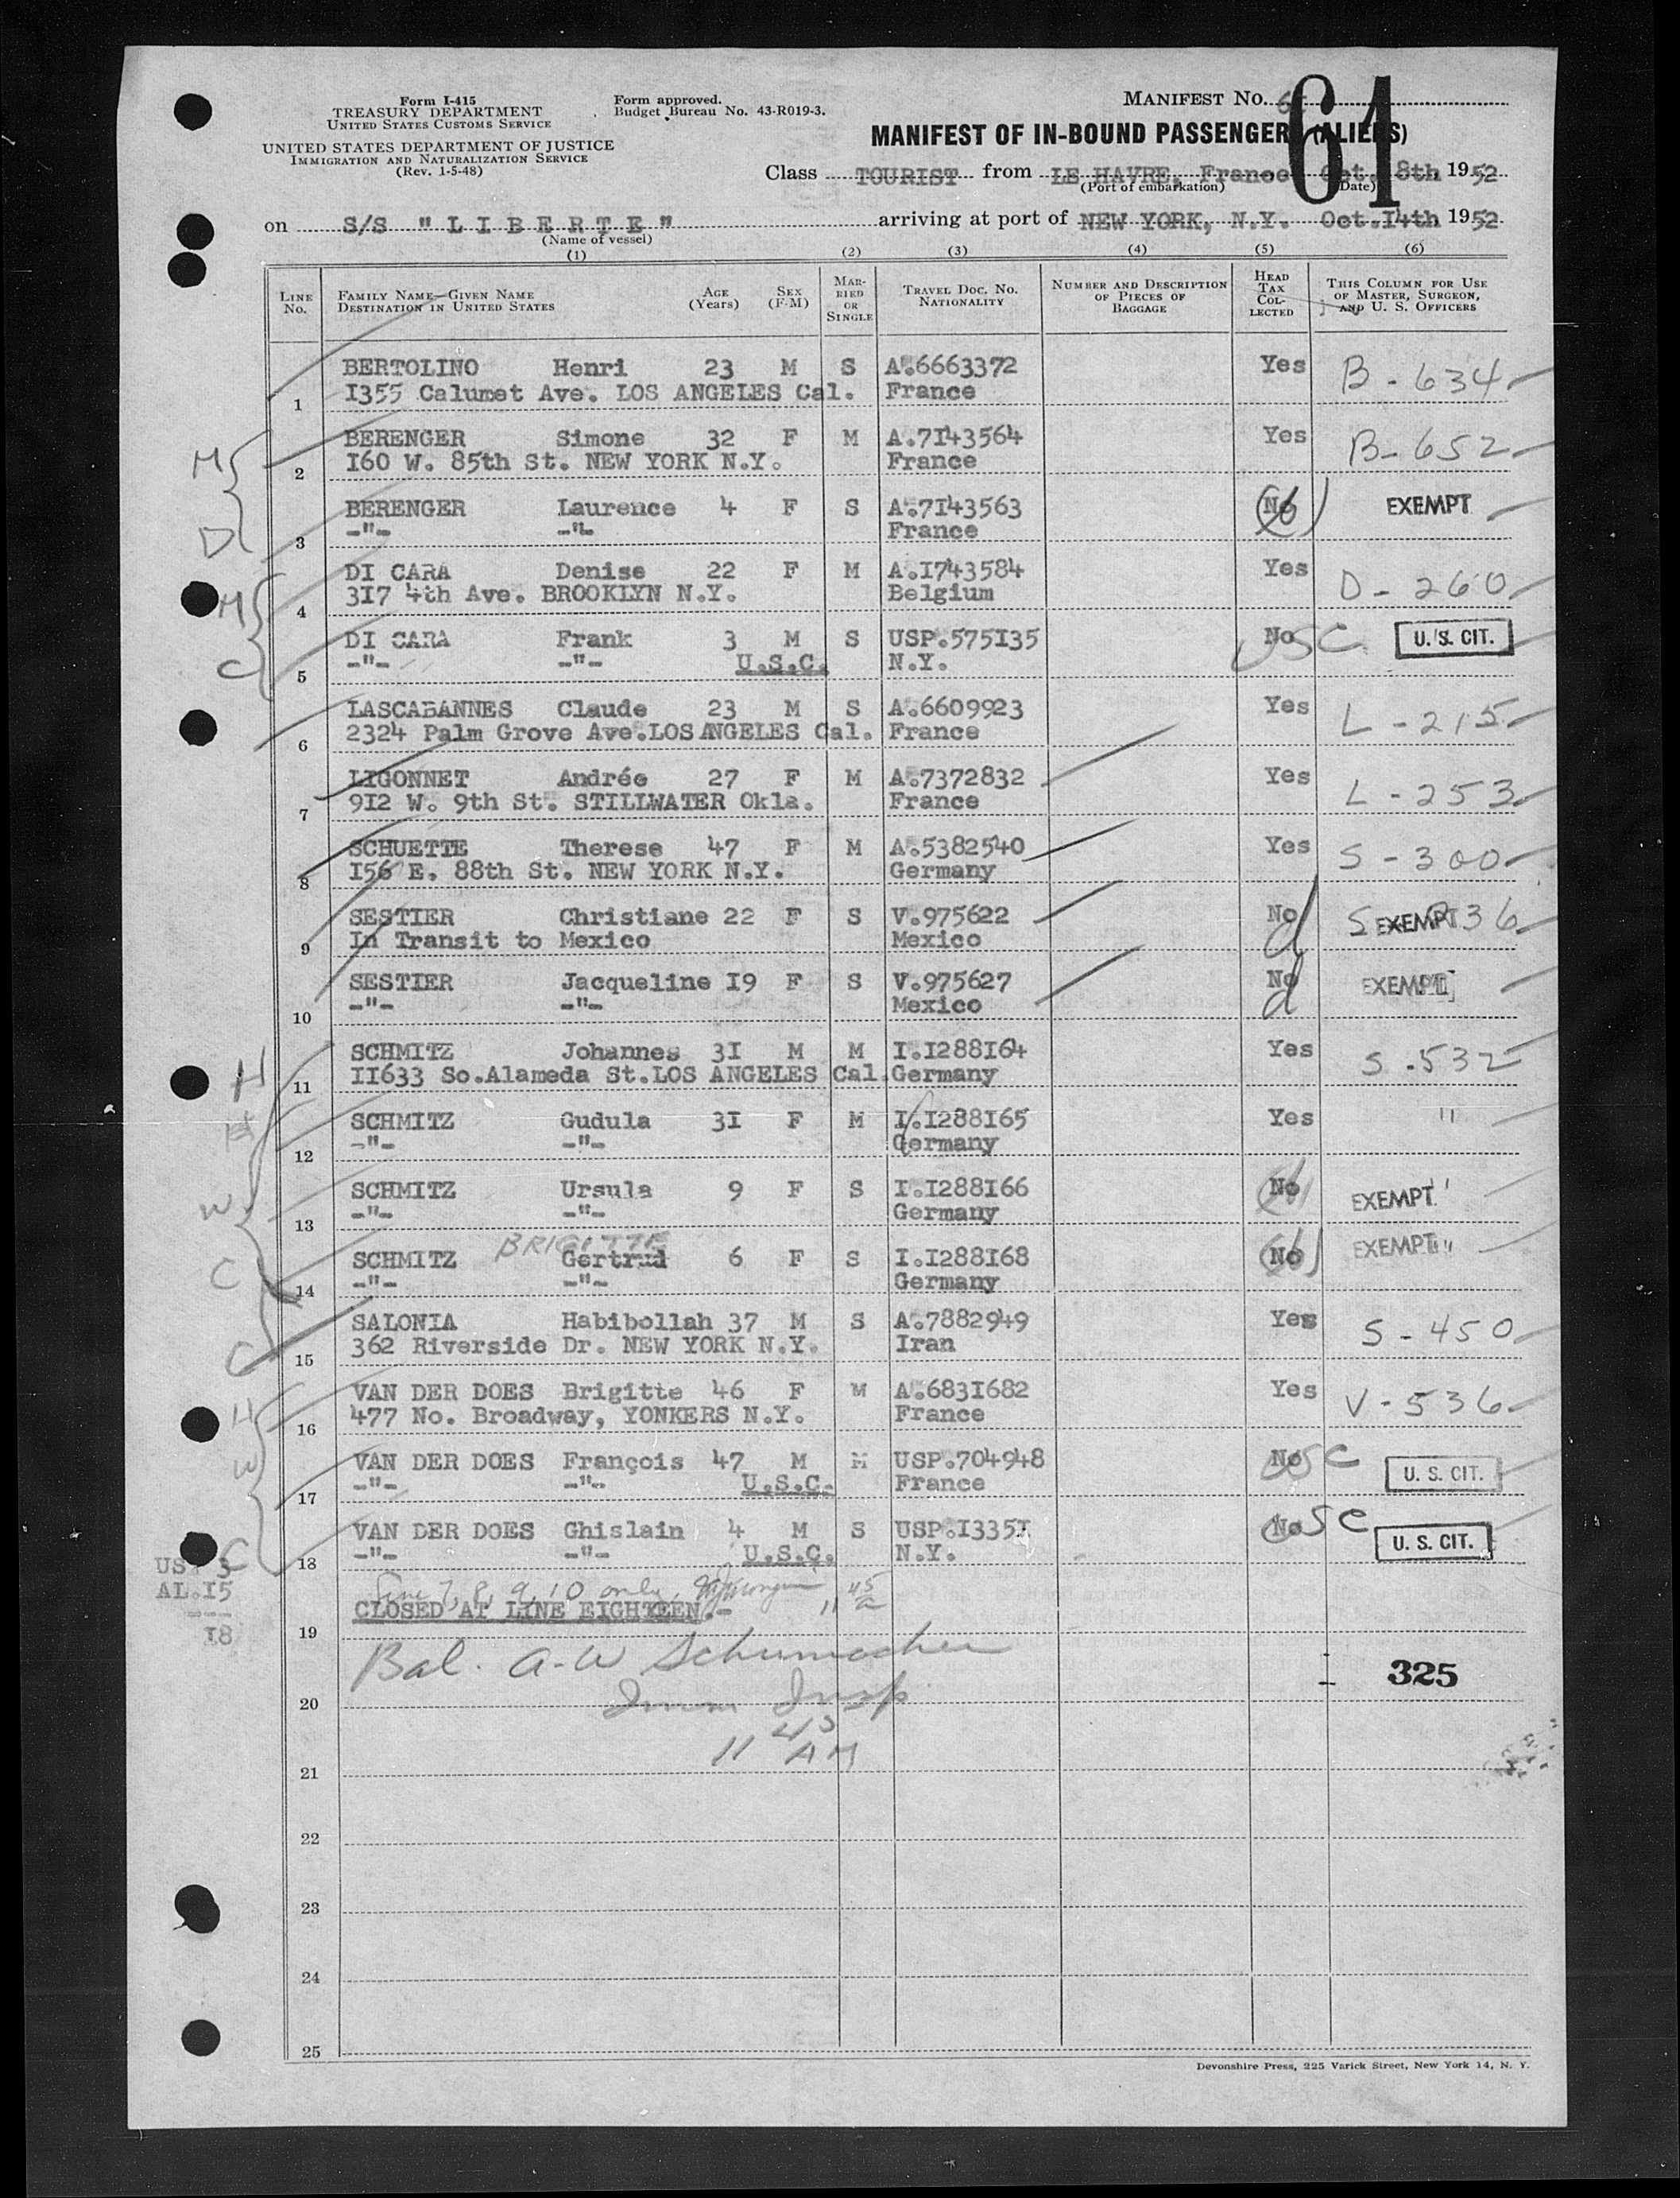 Form I-415
TREASURY DEPARTMENT
UNITED STATES CUSTOMS SERVICE
UNITED STATES DEPARTMENT OF JUSTICE
IMMIGRATION AND NATURALIZATION SERVICE
(Rev. 1-5-48)
Form approved.
Budget Bureau No. 43-R019-3.
MANIFEST NO. 61
MANIFEST OF IN-BOUND PASSENGERS (ALIENS)
Class TOURIST from LE HAVRE, France Oct. 8th 1952
(Port of embarkation) (Date)
on S/S "LIBERTE" arriving at port of NEW YORK, N.Y. Oct.I4th 1952
(Name of vessel)
(1) (2) (3) (4) (5) (6)
LINE NO. FAMILY NAME—GIVEN NAME DESTINATION IN UNITED STATES AGE (Years) SEX (F-M) MARRIED OR SINGLE TRAVEL DOC. NO. NATIONALITY NUMBER AND DESCRIPTION OF PIECES OF BAGGAGE HEAD TAX COLLECTED THIS COLUMN FOR USE OF MASTER, SURGEON, AND U. S. OFFICERS
BERTOLINO Henri 23 M S A.6663372 Yes B-634
1 I355 Calumet Ave. LOS ANGELES Cal. France
M BERENGER Simone 32 F M A.7I43564 Yes B-652
2 I60 W. 85th St. NEW YORK N.Y. France
BERENGER Laurence 4 F S A.7I43563 No EXEMPT
D 3 -"- -"- France
DI CARA Denise 22 F M A.I743584 Yes D-260
M 4 3I7 4th Ave. BROOKLYN N.Y. Belgium
DI CARA Frank 3 M S USP.575I35 No USC U.S. CIT.
C 5 -"- -"- U.S.C. N.Y.
LASCABANNES Claude 23 M S A.6609923 Yes L-215
6 2324 Palm Grove Ave.LOS ANGELES Cal. France
LIGONNET Andrée 27 F M A.7372832 Yes L-253
7 9I2 W. 9th St. STILLWATER Okla. France
SCHUETTE Therese 47 F M A.5382540 Yes S-300
8 I56 E. 88th St. NEW YORK N.Y. Germany
SESTIER Christiane 22 F S V.975622 No S EXEMPT 36
9 In Transit to Mexico Mexico
SESTIER Jacqueline I9 F S V.975627 No EXEMPT
10 -"- -"- Mexico
SCHMITZ Johannes 3I M M I.I288I64 Yes S-532
H 11 II633 So.Alameda St.LOS ANGELES Cal. Germany
SCHMITZ Gudula 3I F M I.I288I65 Yes "
12 -"- -"- Germany
W SCHMITZ Ursula 9 F S I.I288I66 No EXEMPT "
13 -"- -"- Germany
BRIGITTE
C SCHMITZ Gertrud 6 F S I.I288I68 No EXEMPT "
14 -"- -"- Germany
SALONIA Habibollah 37 M S A.7882949 Yes S-450
C 15 362 Riverside Dr. NEW YORK N.Y. Iran
H VAN DER DOES Brigitte 46 F M A.683I682 Yes V-536
16 477 No. Broadway, YONKERS N.Y. France
W VAN DER DOES François 47 M M USP.704948 No USC U. S. CIT.
17 -"- -"- U.S.C. France
VAN DER DOES Ghislain 4 M S USP.I335I No USC U. S. CIT.
C 18 -"- -"- U.S.C. N.Y.
US. 3
AL.I5
I8
Line 7, 8, 9, 10 only 11 45 a
19 CLOSED AT LINE EIGHTEEN.-
Bal. A-W Schumacher
20 Imm Insp
11 45 AM
325
21
22
23
24
25
Devonshire Press, 225 Varick Street, New York 14, N. Y.